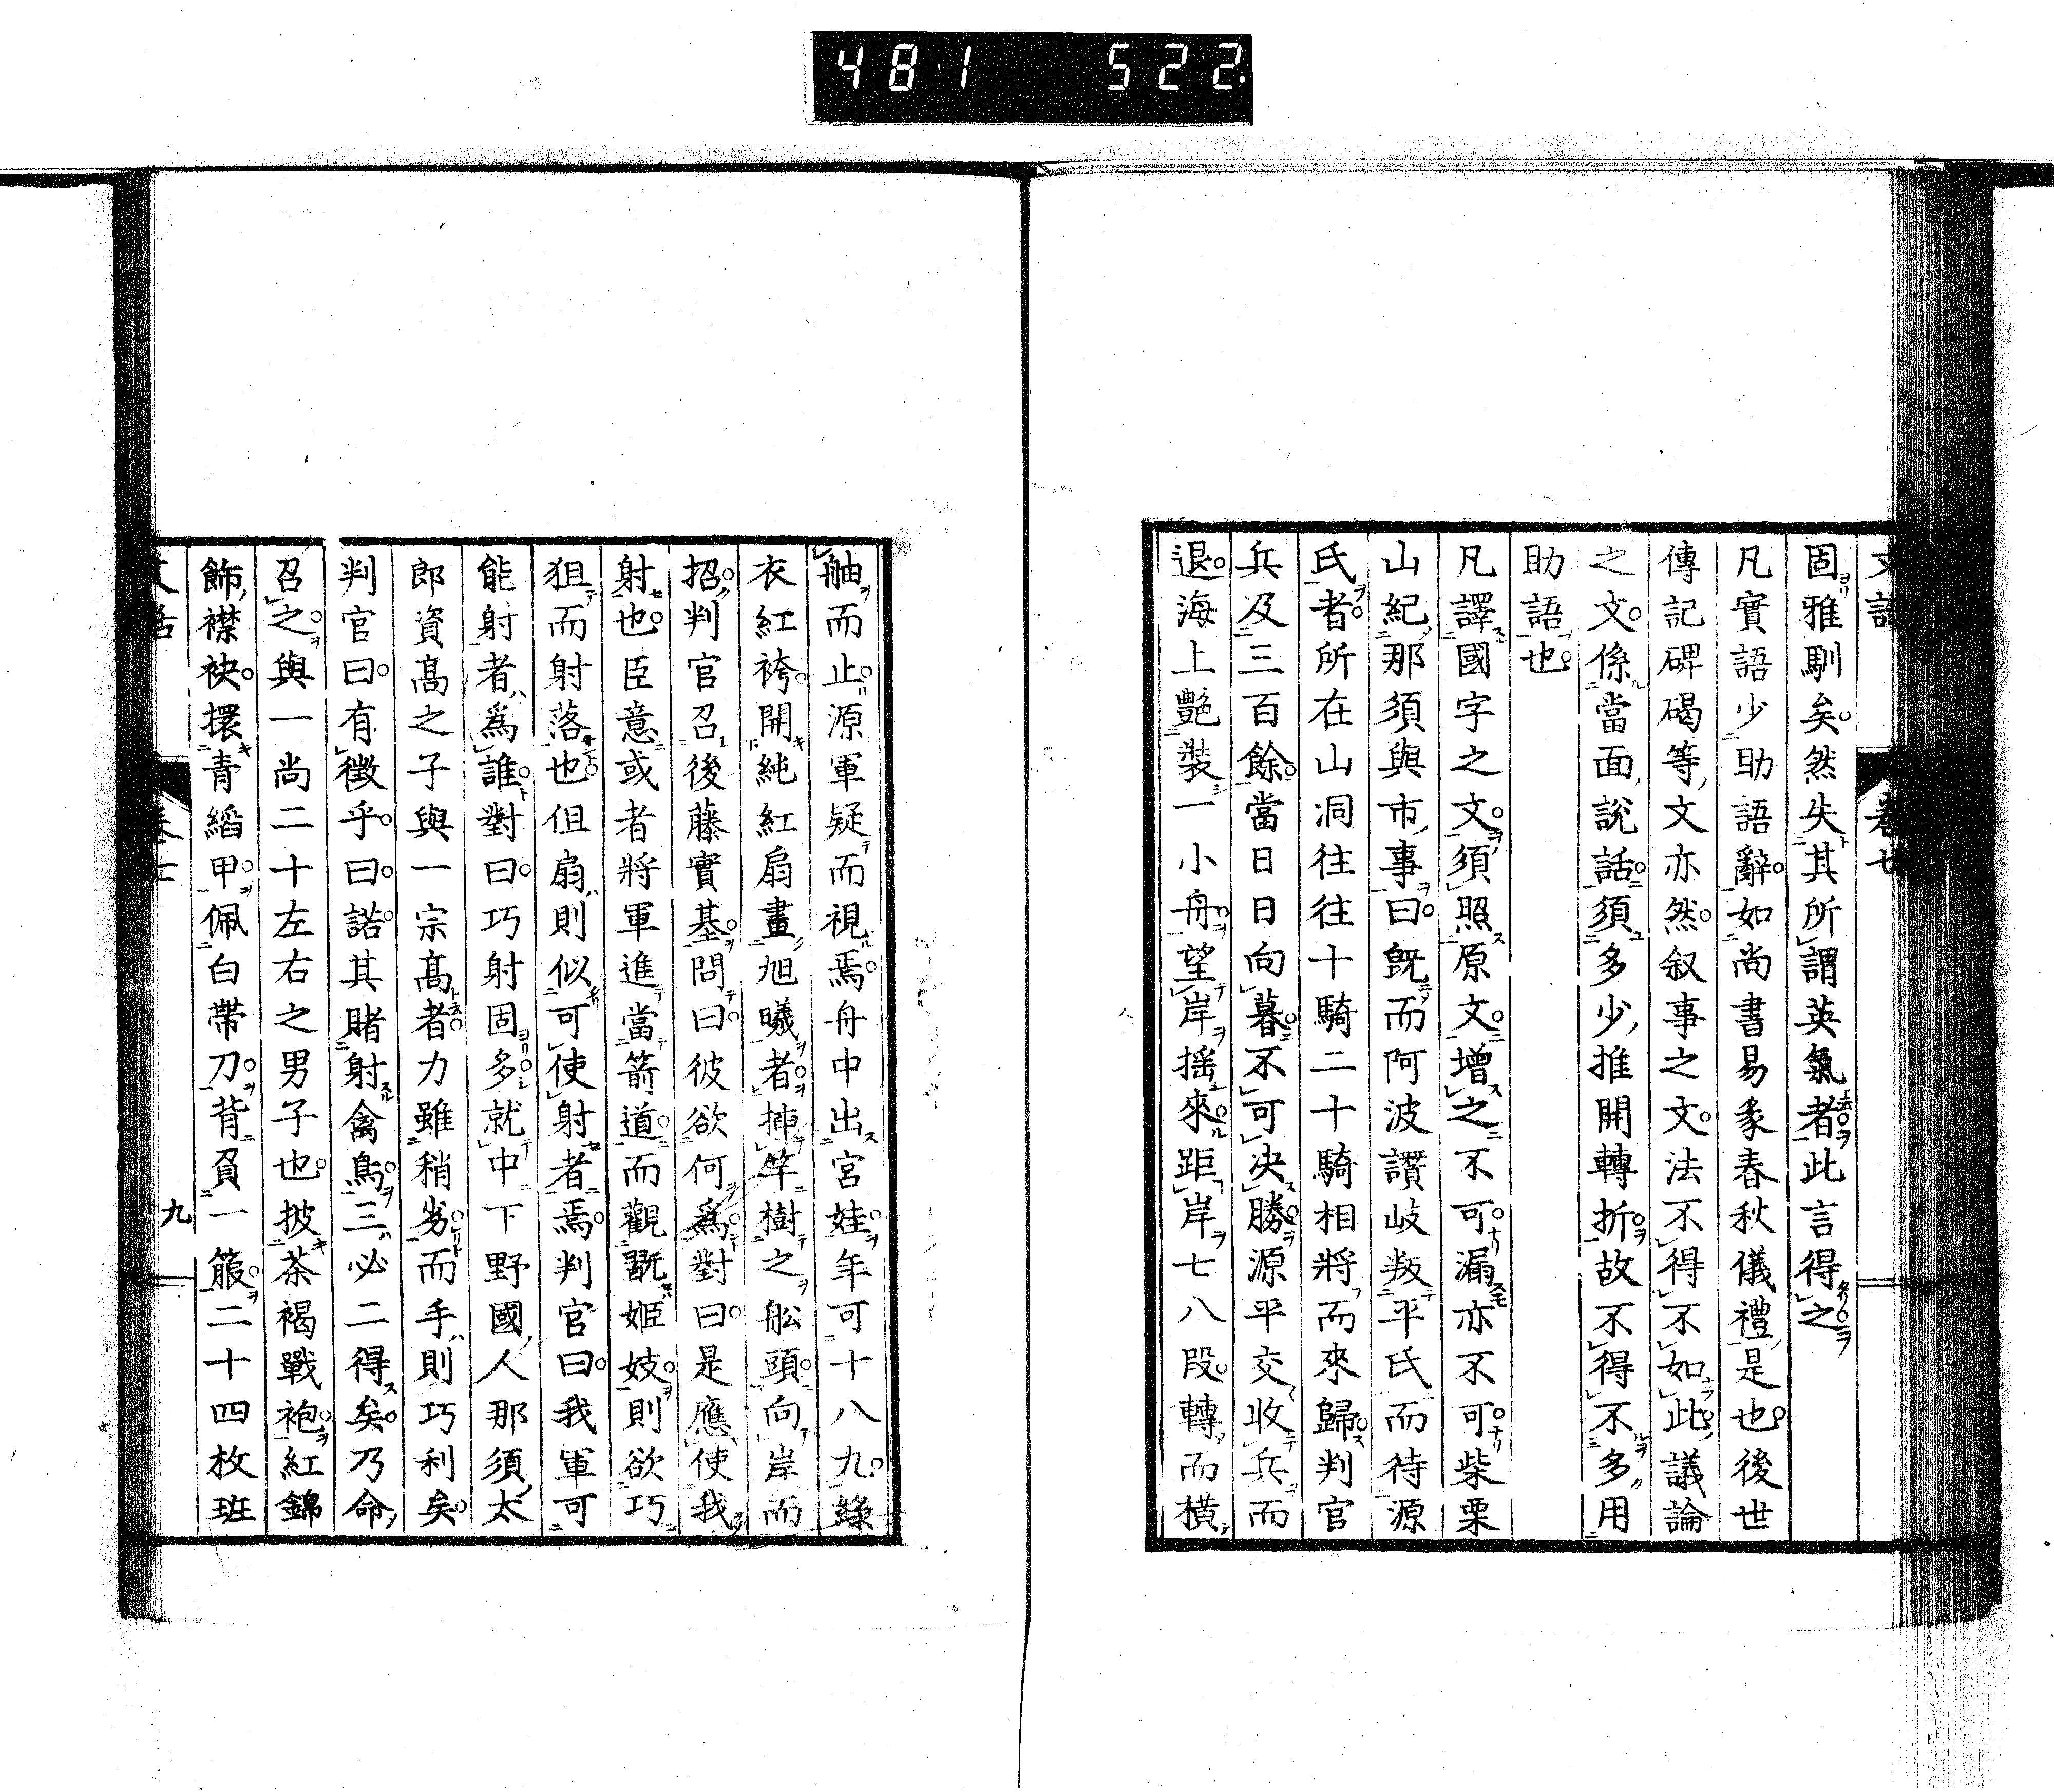 481 522
固雅馴矣然失其所謂英氣者此言得之
凡實語少助語辭如尚書易彖春秋儀禮是也後世
傳記碑碣等文亦然叙事之文法不得不如此議論
之文係當面說話須多少推開轉折故不得不多用
助語也
凡譯國字之文須照原文增之不可漏亦不可柴栗
山紀那須與市事曰既而阿波讚岐叛平氏而待源
氏者所在山洞往往十騎二十騎相將而來歸判官
兵及三百餘當日日向暮不可決勝源平交收兵而
退海上艷裝一小舟望岸搖來距岸七八段轉而橫
舳而止源軍疑而視焉舟中出宮娃年可十八九綠
衣紅袴開純紅扇畫旭曦者揷竿樹之舩頭向岸而
招判官召後藤實基問曰彼欲何爲對曰是應使我
射也臣意或者將軍進當箭道而觀翫姬妓則欲巧
狙而射落也但扇則似可使射者焉判官曰我軍可
能射者爲誰對曰巧射固多就中下野國人那須太
郎資髙之子與一宗髙者力雖稍劣而手則巧利矣
判官曰有徵乎曰諾其賭射禽鳥三必二得矣乃命
召之與一尚二十左右之男子也披茶褐戰袍紅錦
飾襟袂擐青縚甲佩白帶刀背負一箙二十四枚班
九